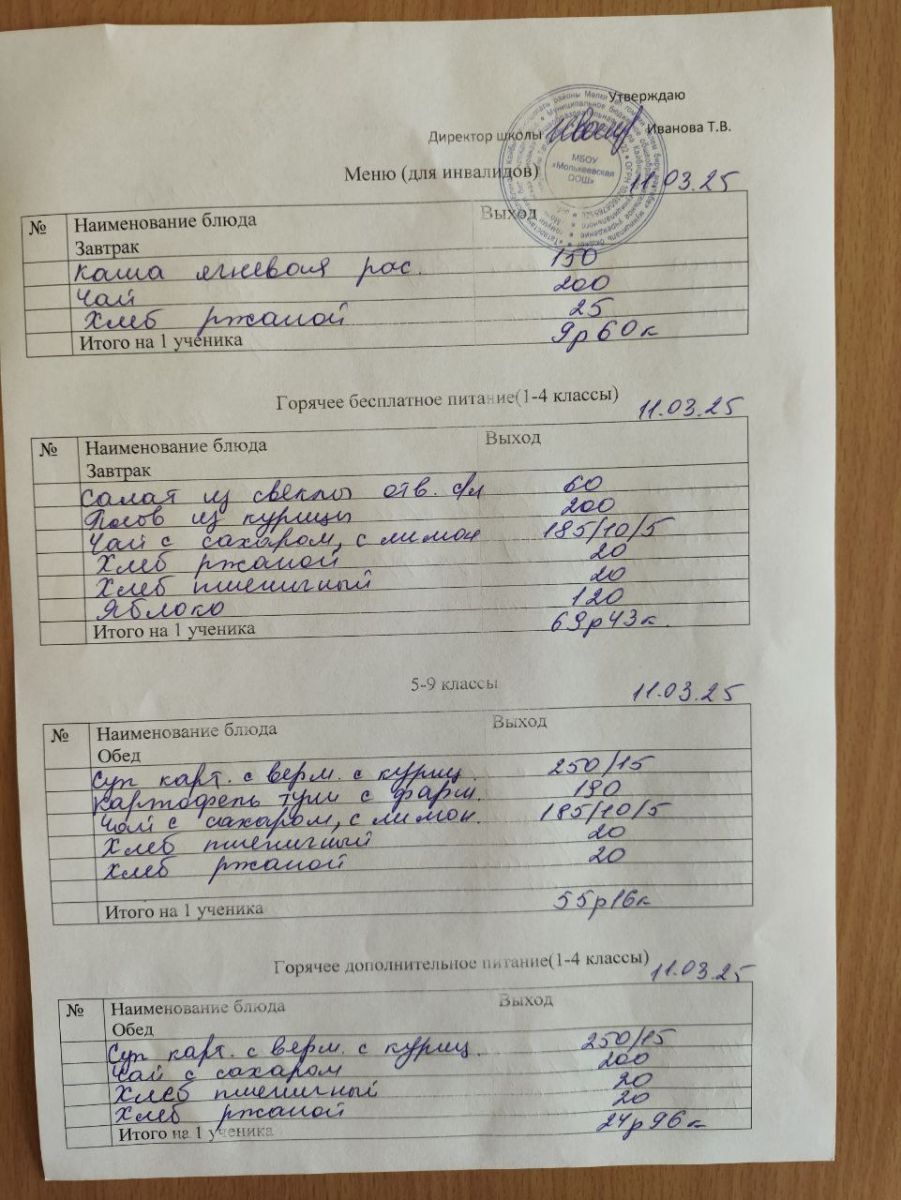 Утверждаю
Директор школы Иванова Т.В.
МБОУ
«Молькеевская
ООШ»
Меню (для инвалидов) 11.03.25
№ Наименование блюда Выход
Завтрак
Каша ягневая рас. 150
Чай 200
Хлеб ржаной 25
Итого на 1 ученика 9р60к
Горячее бесплатное питание(1-4 классы) 11.03.25
№ Наименование блюда Выход
Завтрак
Салат из свеклы отв. с/м 60
Плов из курицы 200
Чай с сахаром, с лимон 185/10/5
Хлеб ржаной 20
Хлеб пшеничный 20
Яблоко 120
Итого на 1 ученика 69р43к.
5-9 классы 11.03.25
№ Наименование блюда Выход
Обед
Суп карт. с верм. с куриц. 250/15
Картофель туш с фарш. 190
Чай с сахаром, с лимон. 185/10/5
Хлеб пшеничный 20
Хлеб ржаной 20
Итого на 1 ученика 55р16к
Горячее дополнительное питание(1-4 классы) 11.03.25
№ Наименование блюда Выход
Обед
Суп карт. с верм. с куриц. 250/15
Чай с сахаром 200
Хлеб пшеничный 20
Хлеб ржаной 20
Итого на 1 ученика 24р96к